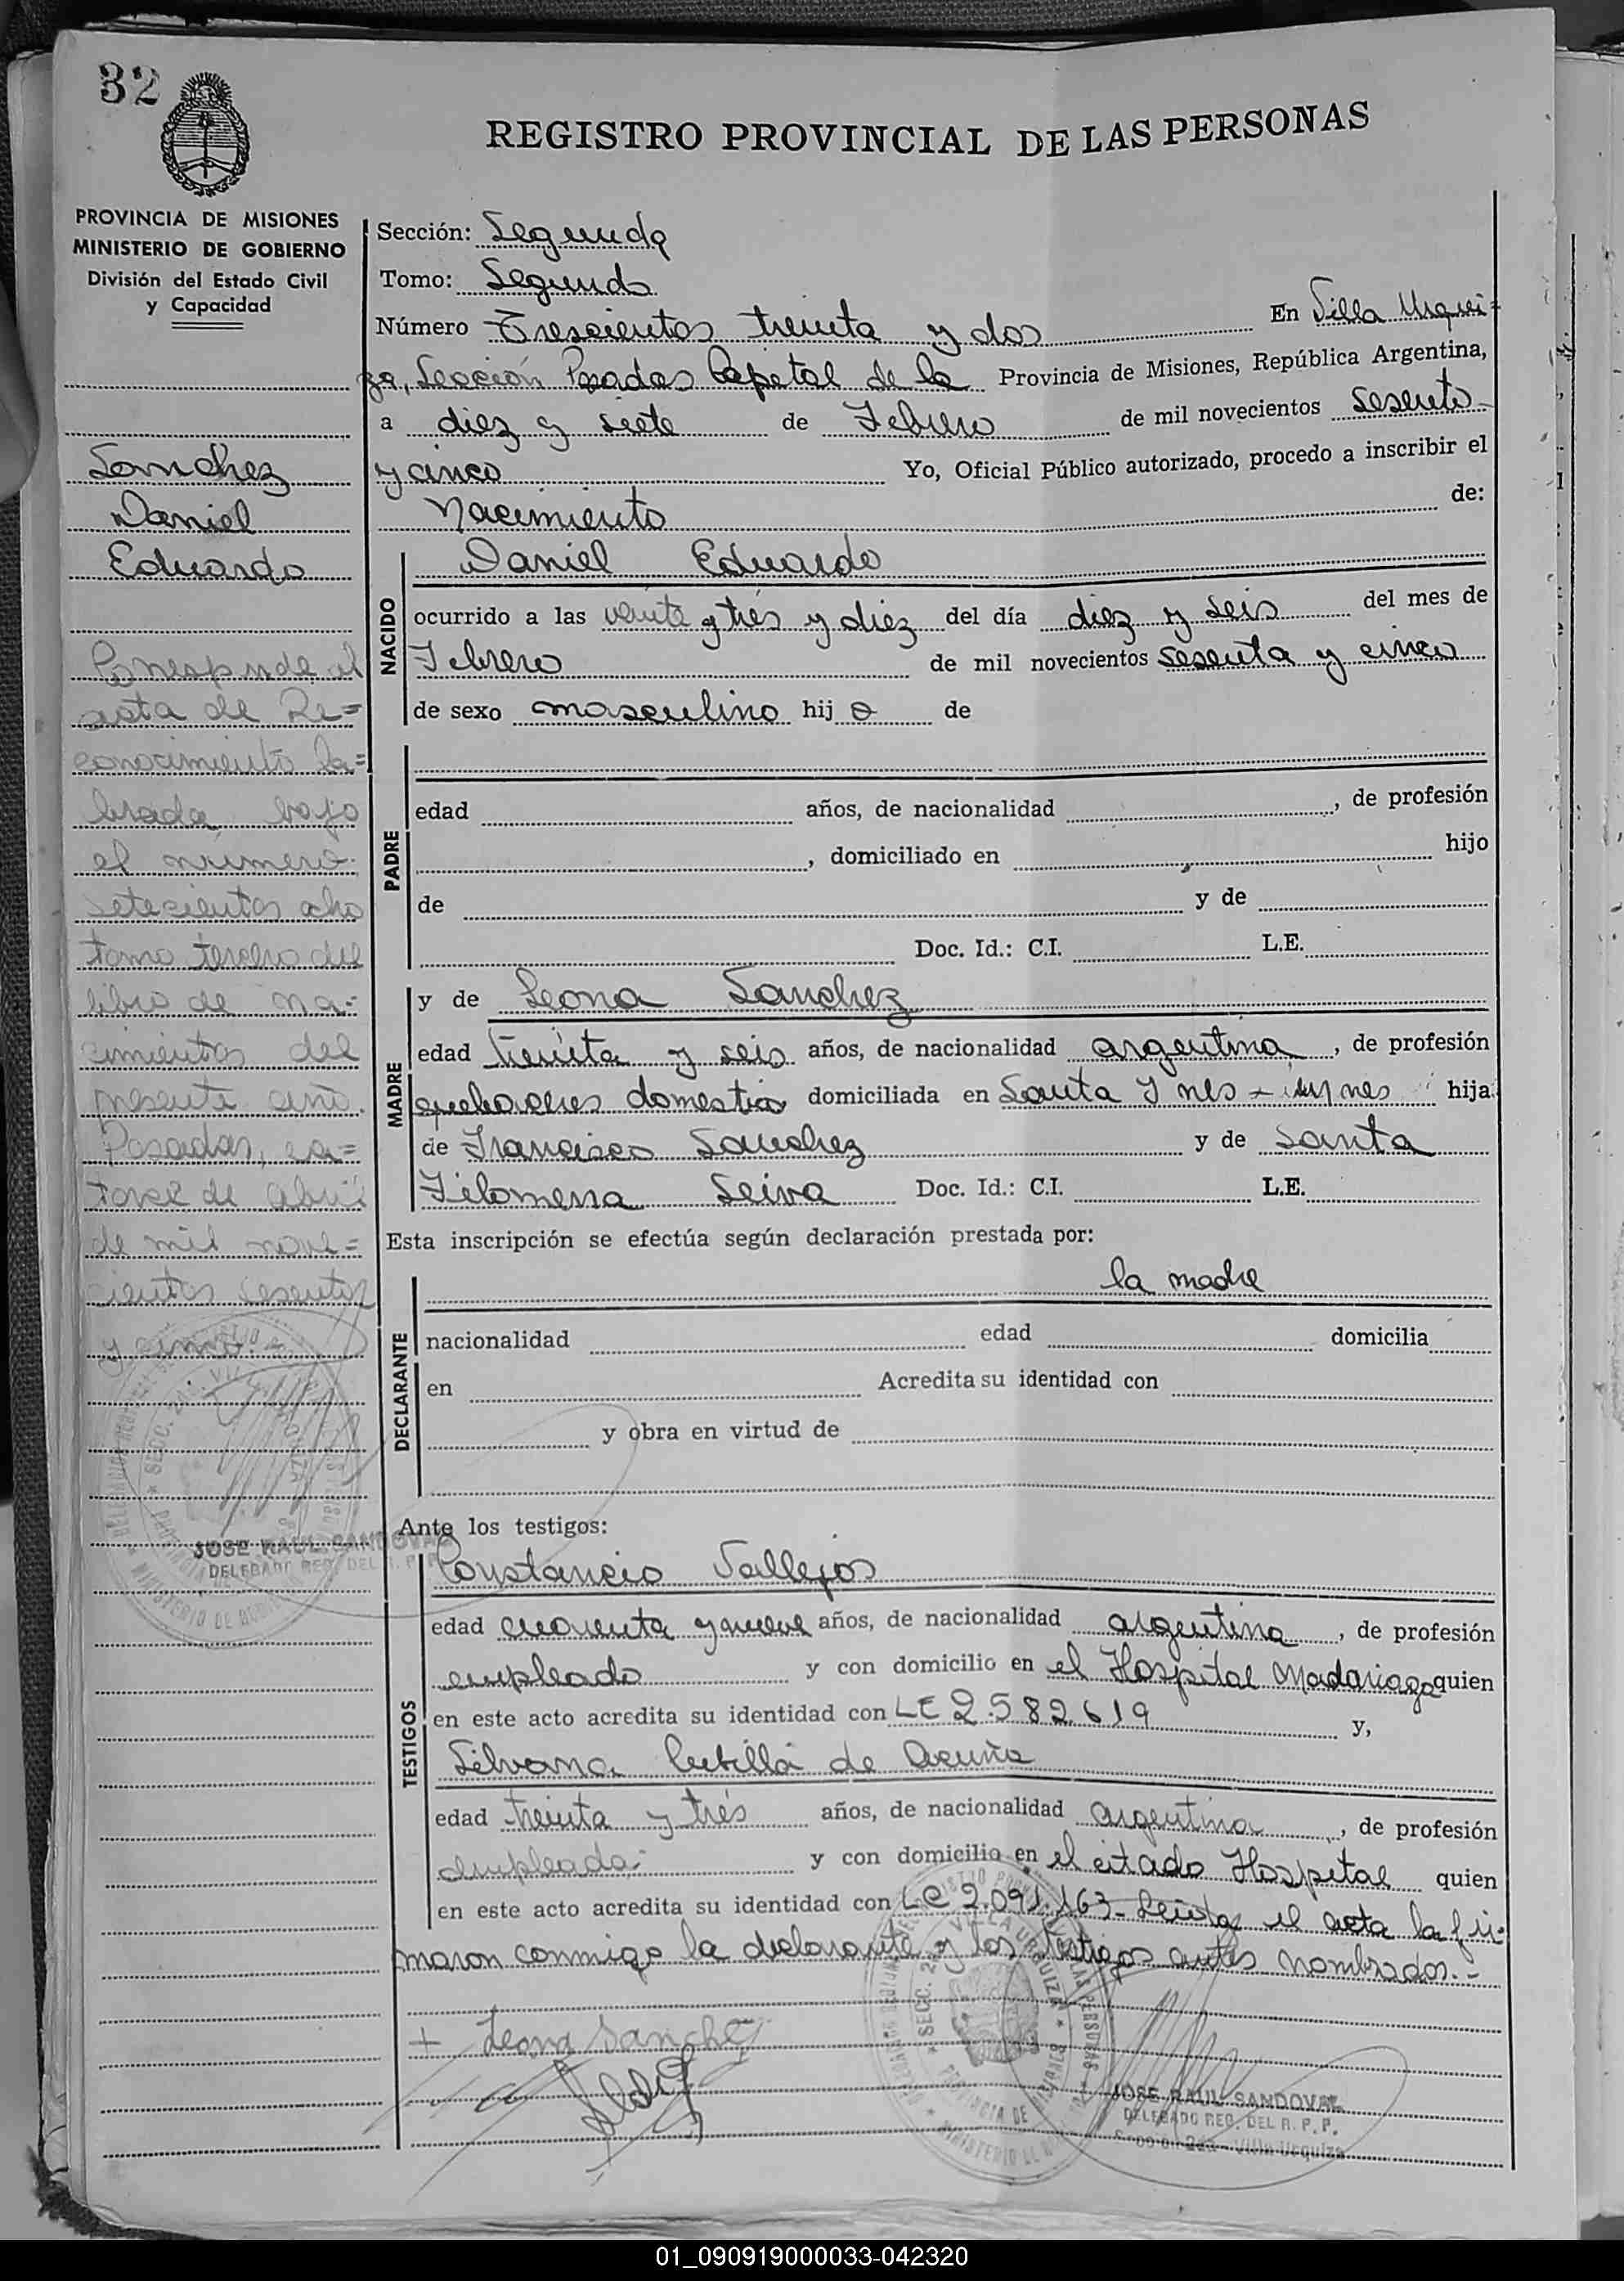 32
REGISTRO PROVINCIAL DE LAS PERSONAS
PROVINCIA DE MISIONES
MINISTERIO DE GOBIERNO
División del Estado Civil
y Capacidad
Sanchez
Daniel
Eduardo
Corresponde al
acta de Re=
conocimiento la=
brada bajo
el número
setecientos ocho
tomo tercero del
libro de na=
cimientos del
presente año.
Posadas, ca=
torce de abril
de mil nove=
cientos sesenta
y cinco.
JOSE RAUL SANDOVAL
DELEGADO REG. DEL R. P. P.
Sección: Segunda
Tomo: Segundo
Número Trescientos treinta y dos En Villa Urqui=
za, Sección Posadas Capital de la Provincia de Misiones, República Argentina,
a diez y siete de Febrero de mil novecientos sesenta
y cinco Yo, Oficial Público autorizado, procedo a inscribir el
Nacimiento de:
NACIDO
Daniel Eduardo
ocurrido a las veinte y tres y diez del día diez y seis del mes de
Febrero de mil novecientos sesenta y cinco
de sexo masculino hij o de
PADRE
edad años, de nacionalidad , de profesión
, domiciliado en hijo
de y de
Doc. Id.: C.I. L.E.
MADRE
y de Leona Sanchez
edad treinta y seis años, de nacionalidad argentina , de profesión
quehaceres domesticos domiciliada en Santa Y nes hija
de Francisco Sanchez y de Santa
Filomena Leiva Doc. Id.: C.I. L.E.
Esta inscripción se efectúa según declaración prestada por:
la madre
DECLARANTE
nacionalidad edad domicilia
en Acredita su identidad con
y obra en virtud de
Ante los testigos:
TESTIGOS
Constancio Vallejos
edad cuarenta y nueve años, de nacionalidad argentina , de profesión
empleado y con domicilio en el Hospital Madariaga quien
en este acto acredita su identidad con LE 2.582.619 y,
Silvana de Acuña
edad treinta y tres años, de nacionalidad argentina , de profesión
empleada y con domicilio en el citado Hospital quien
en este acto acredita su identidad con LE 2.091.163- Leida el acta la fir=
maron conmigo la declarante y los testigos antes nombrados.-
+ Leona Sanchez
JOSE RAUL SANDOVAL
DELEGADO REG. DEL R. P. P.
Sección 2da - Villa Urquiza
01_090919000033-042320